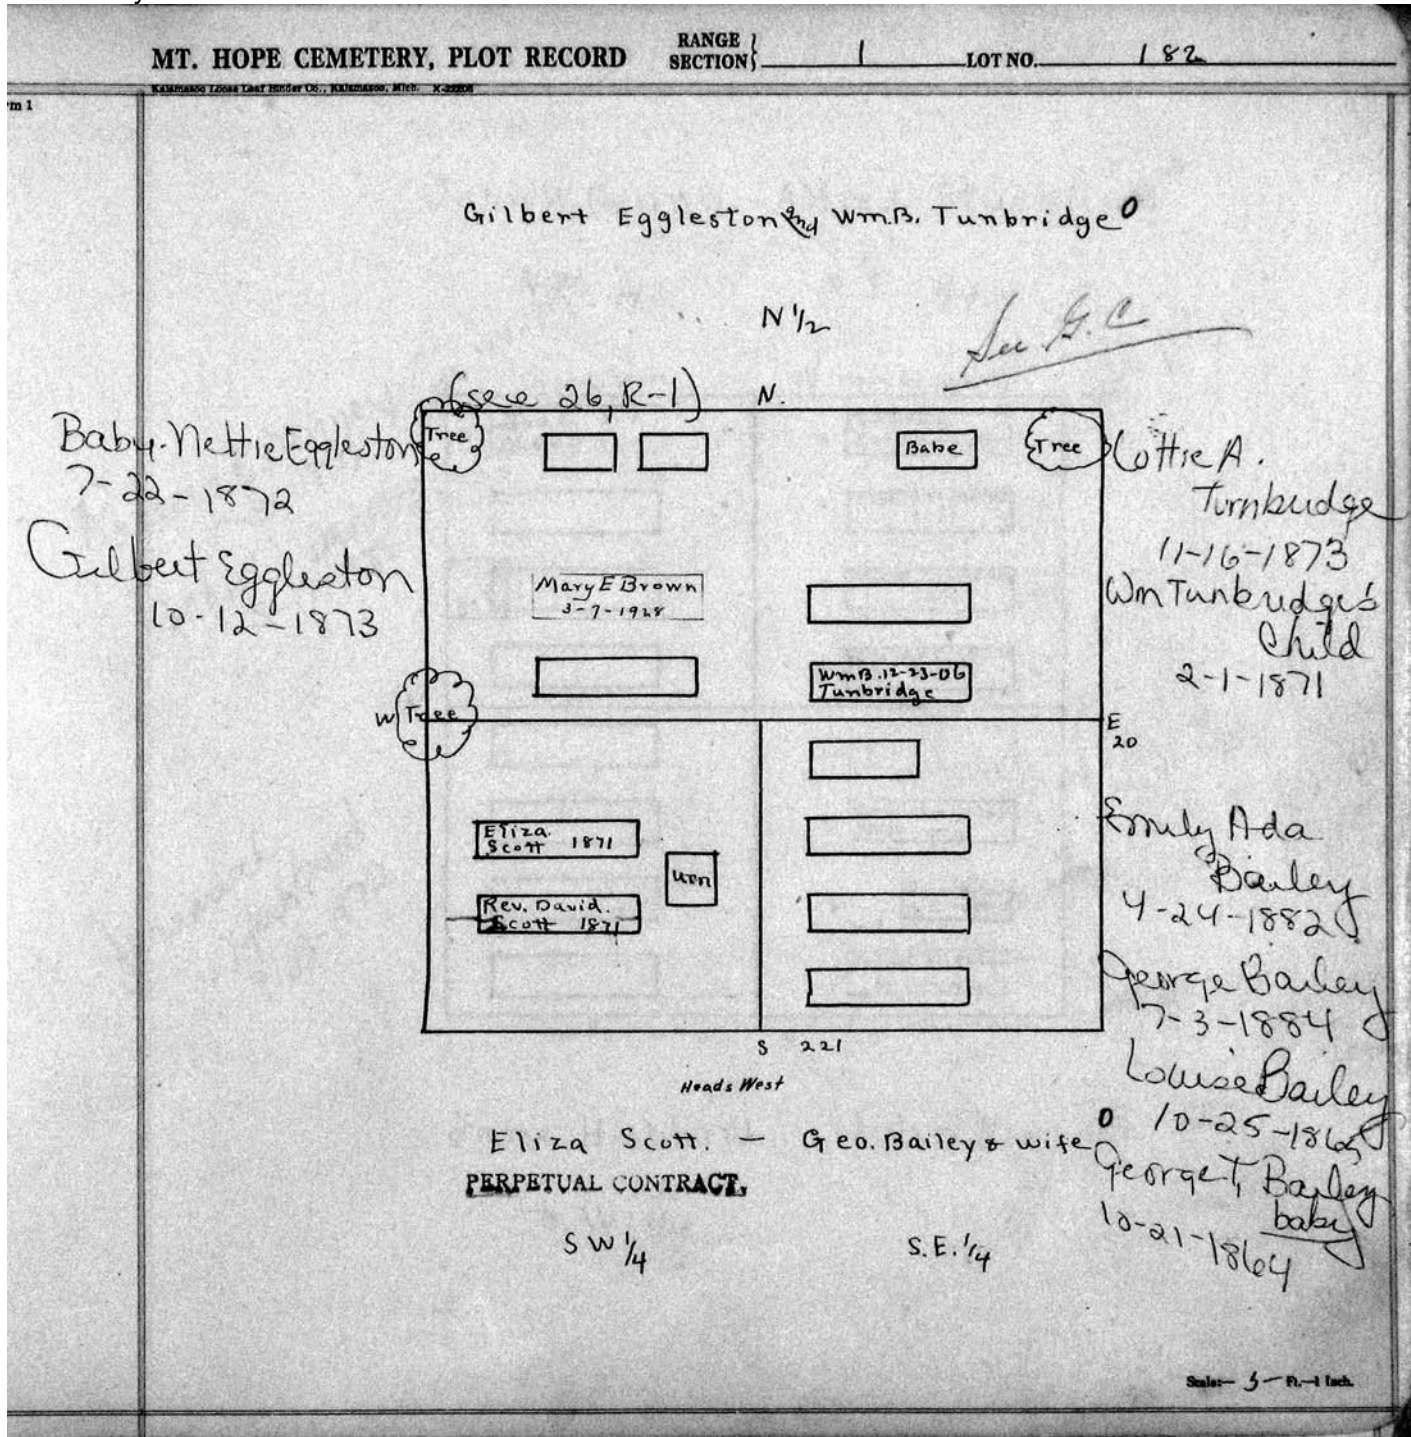 MT. HOPE CEMETERY, PLOT RECORD
RANGE
SECTION } 1 LOT NO. 182
Kalamazoo Loose Leaf Binder Co., Kalamazoo, Mich.
m 1
Gilbert Eggleston and Wm.B. Tunbridge 0
N 1/2
See G.C
(see 26, R-1)
N.
Tree
Babe
Tree
Baby. Nettie Eggleston
7-22-1872
Gilbert Eggleston
10-12-1873
Lottie A.
Turnbudge
11-16-1873
Wm Tunbudge's
Child
2-1-1871
Mary E Brown
3-7-1928
WmB. 12-23-06
Tunbridge
W
Tree
E
20
Eliza.
Scott 1871
urn
Rev. David.
Scott 1871
Emily Ada
Bailey
4-24-1882
George Bailey
7-3-1884
Louise Bailey
10-25-1865
George T, Bailey
baby
10-21-1864
S 221
Heads West
Eliza Scott. — Geo. Bailey & wife 0
PERPETUAL CONTRACT.
SW 1/4
S.E. 1/4
Scale:— 5— Ft.—1 Inch.